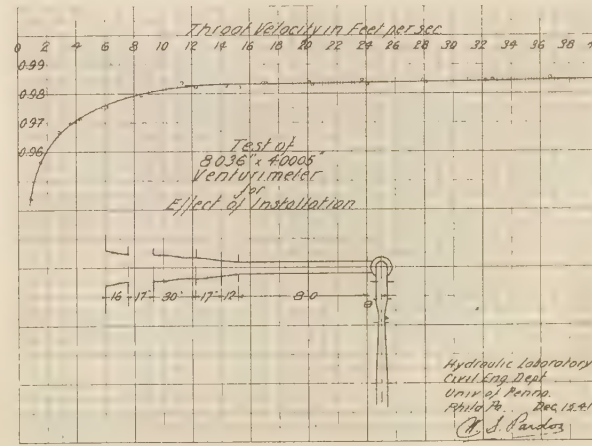 Throat Velocity in Feet per sec
0 2 4 6 8 10 12 14 16 18 20 22 24 26 28 30 32 34 36 38
0.99
0.98
0.97
0.96
Test of
8.036" x 4.0005"
Venturimeter
for
Effect of Installation
16 17" 30" 17" 12 8-0
Hydraulic Laboratory
Civil Eng Dept
Univ of Penna.
Phila Pa. Dec, 15, 41
W. S. Pardoe